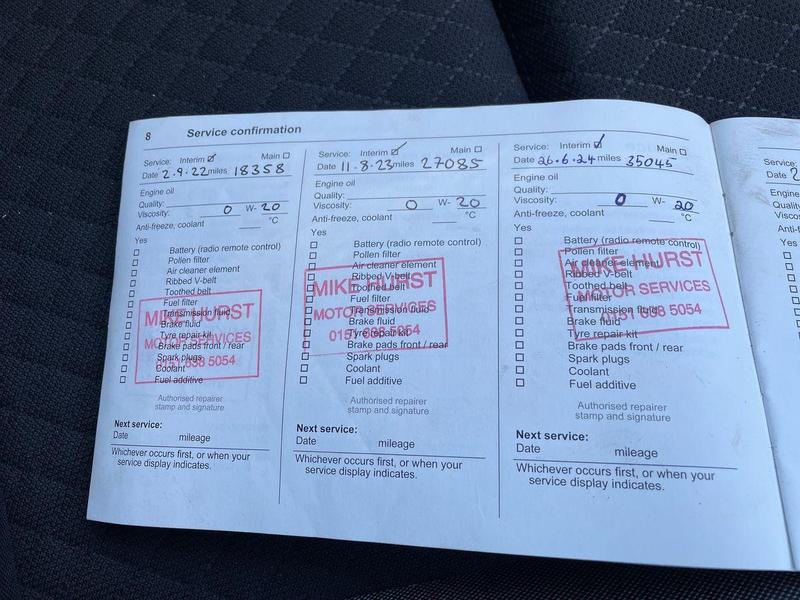 8 Service confirmation
Service: Interim ☑ Main ☐
Date 2.9.22 miles 18358
Engine oil
Quality:
Viscosity: 0 W- 20
Anti-freeze, coolant °C
Yes
☐ Battery (radio remote control)
☐ Pollen filter
☐ Air cleaner element
☐ Ribbed V-belt
☐ Toothed belt
☐ Fuel filter
☐ Transmission fluid
☐ Brake fluid
☐ Tyre repair kit
☐ Brake pads front / rear
☐ Spark plugs
☐ Coolant
☐ Fuel additive
MIKE HURST
MOTOR SERVICES
0151 638 5054
Authorised repairer
stamp and signature
Next service:
Date mileage
Whichever occurs first, or when your
service display indicates.
Service: Interim ☑ Main ☐
Date 11.8.23 miles 27085
Engine oil
Quality:
Viscosity: 0 W- 20
Anti-freeze, coolant °C
Yes
☐ Battery (radio remote control)
☐ Pollen filter
☐ Air cleaner element
☐ Ribbed V-belt
☐ Toothed belt
☐ Fuel filter
☐ Transmission fluid
☐ Brake fluid
☐ Tyre repair kit
☐ Brake pads front / rear
☐ Spark plugs
☐ Coolant
☐ Fuel additive
MIKE HURST
MOTOR SERVICES
0151 638 5054
Authorised repairer
stamp and signature
Next service:
Date mileage
Whichever occurs first, or when your
service display indicates.
Service: Interim ☑ Main ☐
Date 26.6.24 miles 35045
Engine oil
Quality:
Viscosity: 0 W- 20
Anti-freeze, coolant °C
Yes
☐ Battery (radio remote control)
☐ Pollen filter
☐ Air cleaner element
☐ Ribbed V-belt
☐ Toothed belt
☐ Fuel filter
☐ Transmission fluid
☐ Brake fluid
☐ Tyre repair kit
☐ Brake pads front / rear
☐ Spark plugs
☐ Coolant
☐ Fuel additive
MIKE HURST
MOTOR SERVICES
0151 638 5054
Authorised repairer
stamp and signature
Next service:
Date mileage
Whichever occurs first, or when your
service display indicates.
Service:
Date 2
Engine
Quality
Yes